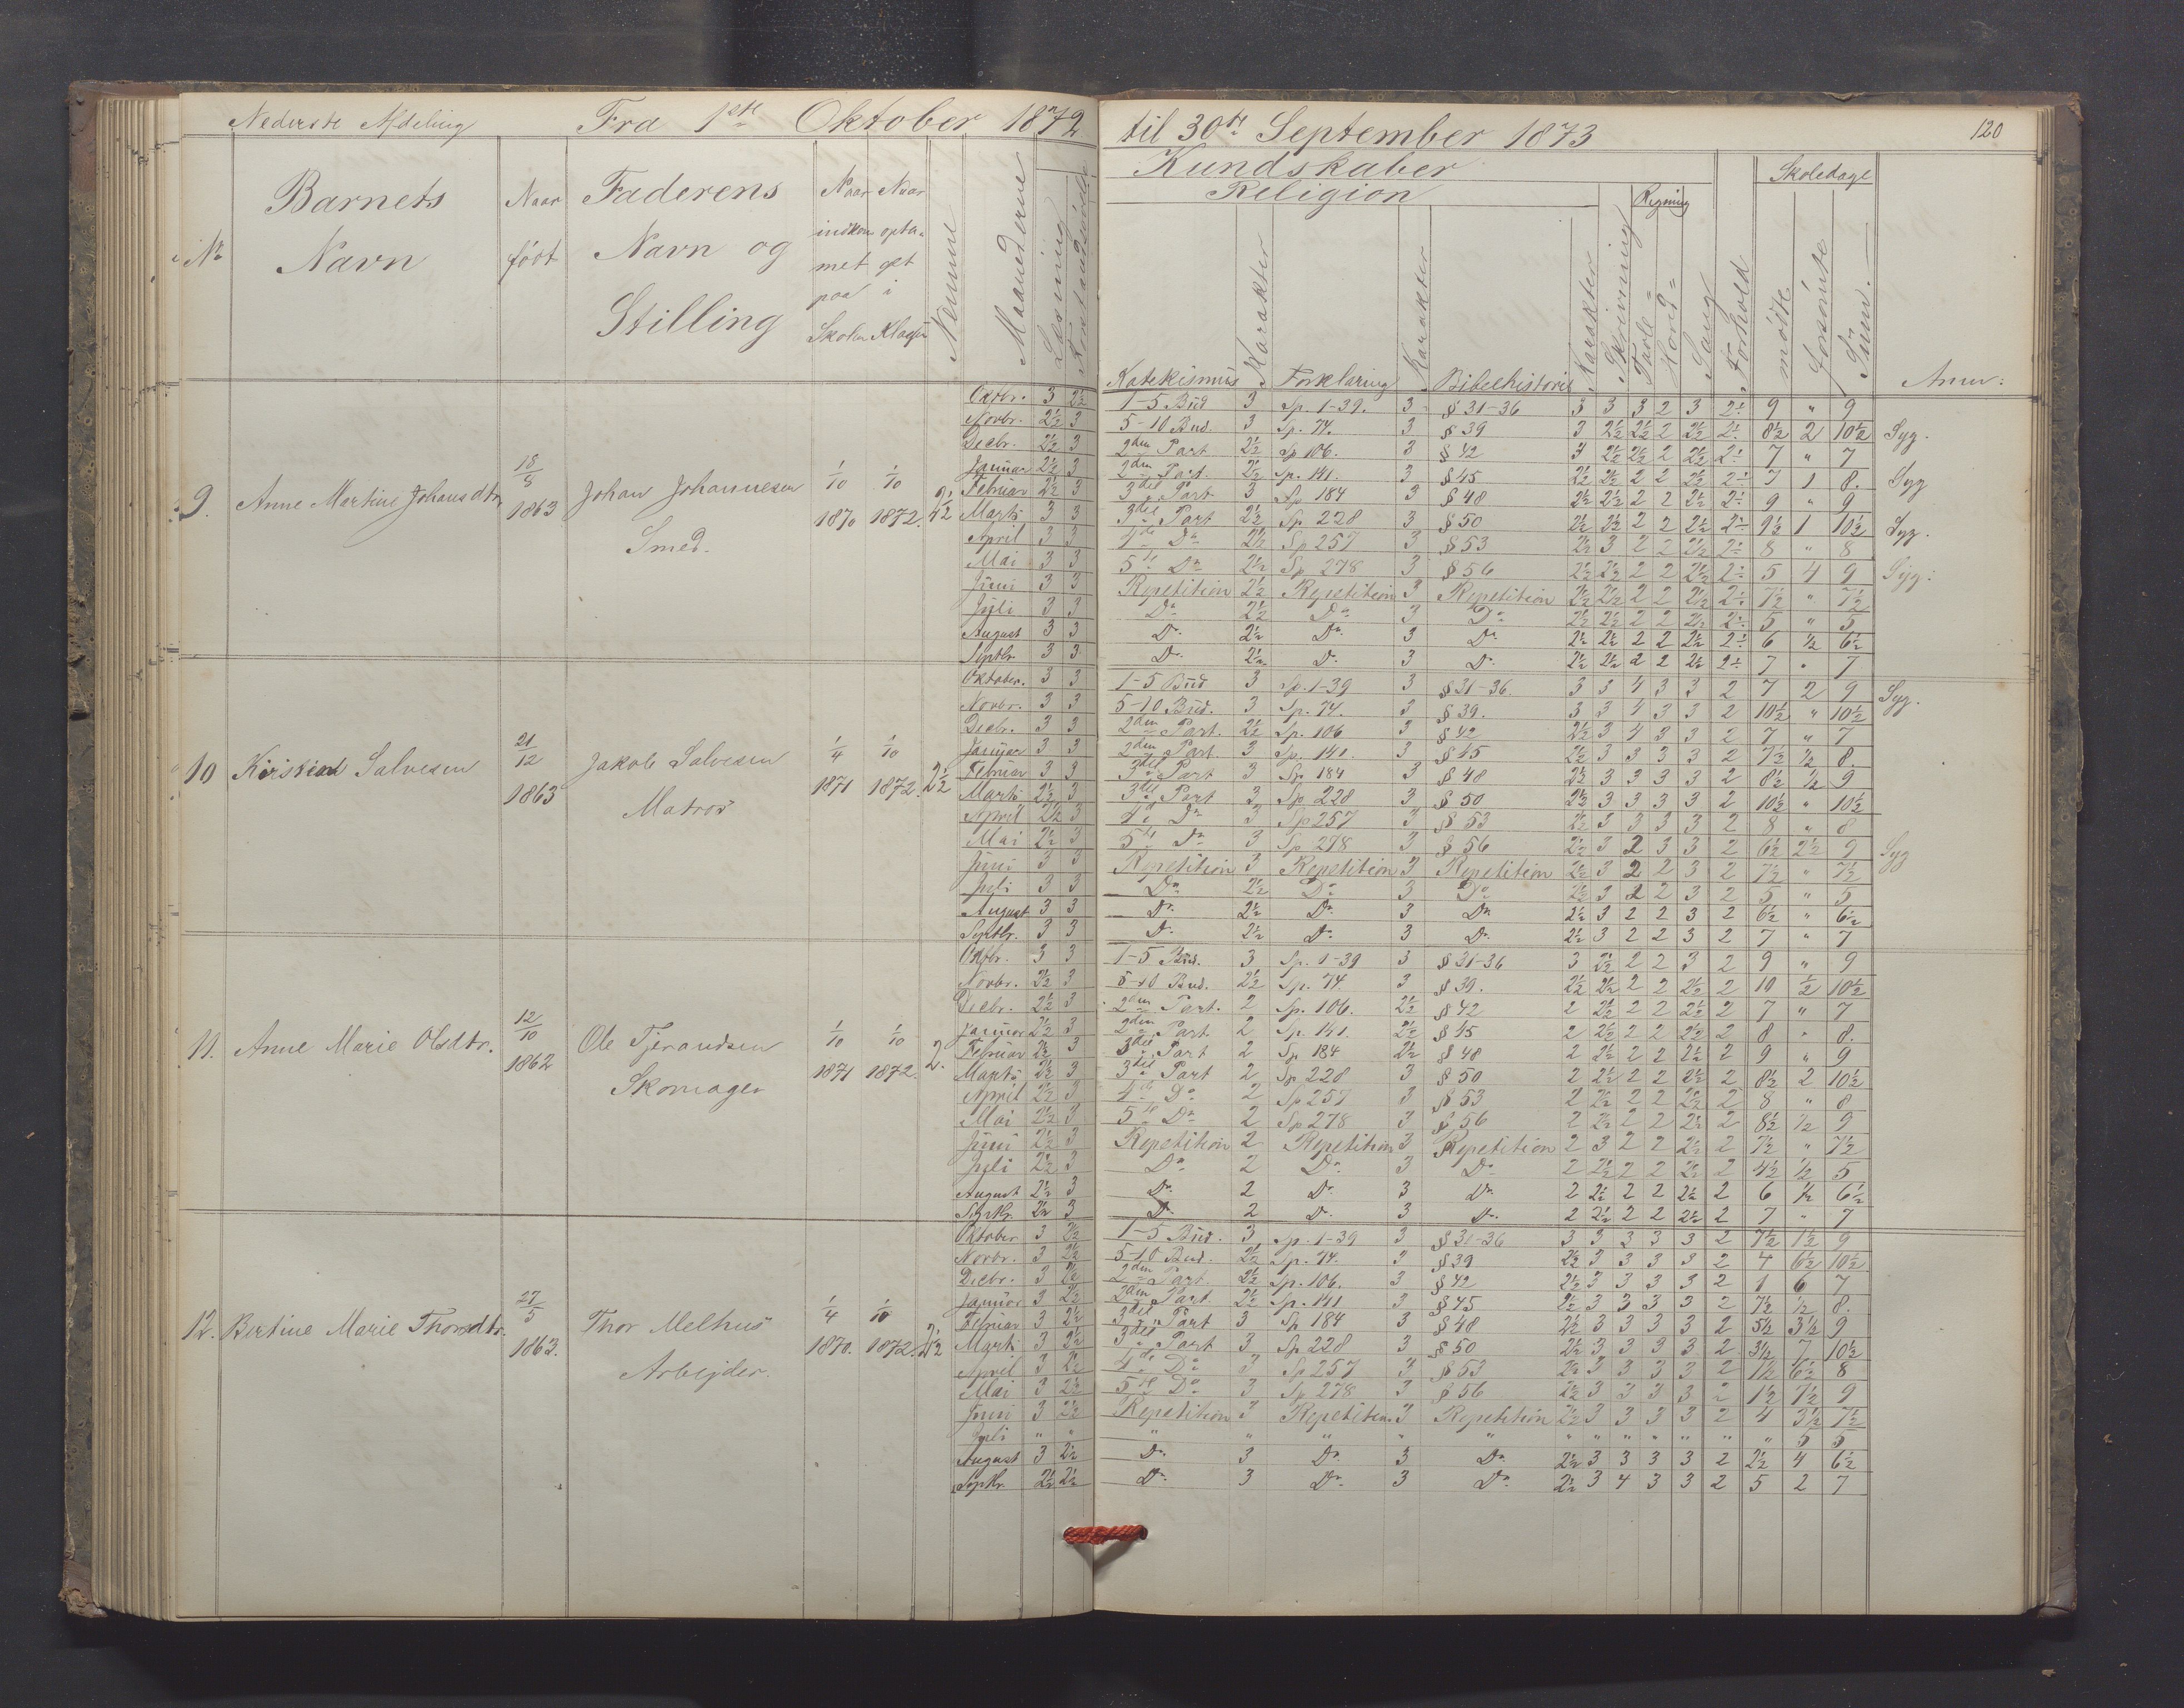 Nederste Afdeling Fra 1ste Oktober 1872 til 30te September 1873 120
Kundskaber Skoledage
Religion Regning
No Barnets Navn Naar født Faderens Navn og Stilling Naar indkommet paa Skolen Naar optaget i Klassen Nemme Maanederne Læsning Katekismus Karakter Forklaring Karakter Bibelhistorie Karakter Skrivning Tavle= Hoved= Sang Forhold mødte forsømte Sum. Anm:
9. Anne Martine Johansdtr. 18/8 1863 Johan Johannesen Smed. 1/10 1870 1/10 1872. 2½
Oktbr. 3 2½ 1-5 Bud 3 Sp. 1-39. 3 § 31-36 3 3 3 2 3 2÷ 9 " 9
Novbr. 2½ 3 5-10 Bud. 3 Sp. 74. 3 § 39 3 2½ 2½ 2 2½ 2÷ 8½ 2 10½ Syg.
Decbr. 2½ 3 2den Part 2½ Sp 106. 3 § 42 3 2½ 2½ 2 2½ 2÷ 7 " 7
Januar 2½ 3 2den Part. 2½ Sp. 141. 3 § 45 2½ 2½ 2 2 2½ 2÷ 7 1 8. Syg
Februar 2½ 3 3die Part 3 Sp 184 3 § 48 2½ 2½ 2 2 2½ 2÷ 9 " 9
Marts 3 3 3die Part 2½ Sp 228 3 § 50 2½ 2½ 2 2 2½ 2÷ 9½ 1 10½ Syg.
April 3 3 4de Do 2½ Sp 257 3 § 53 2½ 3 2 2 2½ 2÷ 8 " 8
Mai 3 3 5te Do 2½ Sp 278 3 § 56 2½ 2½ 2 2 2½ 2÷ 5 4 9 Syg.
Juni 3 3 Repetition 2½ Repetition 3 Repetition 2½ 2½ 2 2 2½ 2÷ 7½ " 7½
Juli 3 3 Do 2½ Do 3 Do 2½ 2½ 2 2 2½ 2÷ 5 " 5
August 3 3 Do 2½ Do 3 Do 2½ 2½ 2 2 2½ 2÷ 6 ½ 6½
Septbr. 3 3 Do 2½ Do 3 Do 2½ 2½ 2 2 2½ 2÷ 7 " 7
10 Kirstine Salvesen 21/12 1863 Jakob Salvesen Matros 1/4 1871 1/10 1872. 2½
Oktober. 3 3 1-5 Bud 3 Sp. 1-39 3 § 31-36. 3 3 4 3 3 2 7 2 9 Syg.
Novbr. 3 3 5-10 Bud. 3 Sp. 74. 3 § 39. 3 3 4 3 3 2 10½ " 10½
Decbr. 3 3 2den Part. 2½ Sp. 106 3 § 42 2½ 3 4 3 3 2 7 " 7
Januar 3 3 2den Part. 3 Sp. 141. 3 § 45 2½ 3 3 3 3 2 7½ ½ 8.
Februar 3 3 3die Part 3 Sp 184 3 § 48 2½ 3 3 3 3 2 8½ ½ 9
Marts 2½ 3 3die Part 3 Sp 228 3 § 50 2½ 3 3 3 3 2 10½ " 10½
April 2½ 3 4de Do 3 Sp 257 3 § 53 2½ 3 3 3 3 2 8 " 8
Mai 2½ 3 5te Do 3 Sp 278 3 § 56 2½ 3 2 3 3 2 6½ 2½ 9 Syg
Juni 3 3 Repetition 3 Repetition 3 Repetition 2½ 3 2 2 3 2 7½ " 7½
Juli 3 3 Do 2½ Do 3 Do 2½ 3 2 2 3 2 5 " 5
August 3 3 Do 2½ Do 3 Do 2½ 3 2 2 3 2 6½ " 6½
Septbr. 3 3 Do 2½ Do 3 Do 2½ 3 2 2 3 2 7 " 7
11. Anne Marie Olsdtr. 12/10 1862 Ole Tjerandsen Skomager 1/10 1871 1/10 1872. 2.
Oktbr. 3 3 1-5 Bud. 3 Sp. 1-39 3 § 31-36 3 2½ 2 2 3 2 9 " 9
Novbr. 2½ 3 5-10 Bud. 2½ Sp. 74 3 § 39. 2½ 2½ 2 2 2½ 2 10 ½ 10½
Decbr. 2½ 3 2den Part. 2 Sp. 106. 2½ § 42 2 2½ 2 2 2½ 2 7 " 7
Januar 2½ 3 2den Part. 2 Sp. 141. 2½ § 45 2 2½ 2 2 2½ 2 8 " 8.
Februar 2½ 3 3die Part 2 Sp 184 2½ § 48 2 2½ 2 2 2½ 2 9 " 9
Marts 2½ 3 3die Part 2 Sp. 228 3 § 50 2 2½ 2 2 2½ 2 8½ 2 10½
April 2½ 3 4de Do 2 Sp 257 3 § 53 2 2½ 2 2 2½ 2 8 " 8
Mai 2½ 3 5te Do 2 Sp 278 3 § 56 2 2½ 2 2 2½ 2 8½ ½ 9
Juni 2½ 3 Repetition 2 Repetition 3 Repetition 2 3 2 2 2½ 2 7½ " 7½
Juli 2½ 3 Do 2 Do 3 Do 2 2½ 2 2 2½ 2 4½ ½ 5
August 2½ 3 Do 2 Do 3 Do 2 2½ 2 2 2½ 2 6 ½ 6½
Septbr. 2½ 3 Do 2 Do 3 Do 2 2½ 2 2 2½ 2 7 " 7
12. Bertine Marie Thorsdtr. 27/5 1863. Thor Melhus Arbejder. 1/4 1870. 1/10 1872. 2½
Oktober 3 2½ 1-5 Bud. 3 Sp. 1-39 3 § 31-36 3 3 3 3 3 2 7½ 1½ 9
Novbr. 3 2½ 5-10 Bud. 2½ Sp. 74. 3 § 39 2½ 3 3 3 3 2 4 6½ 10½
Decbr. 3 2½ 2den Part. 2½ Sp. 106. 3 § 42 2½ 3 3 3 3 2 1 6 7
Januar 3 2½ 2den Part 2½ Sp. 141 3 § 45 2½ 3 3 3 3 2 7½ ½ 8.
Februar 3 2½ 3die Part 3 Sp 184 3 § 48 2½ 3 3 3 3 2 5½ 3½ 9
Marts 3 2½ 3die Part 3 Sp 228 3 § 50 2½ 3 3 3 3 2 3½ 7 10½
April 3 2½ 4de Do 3 Sp 257 3 § 53 2½ 3 3 3 3 2 1½ 6½ 8
Mai 3 2½ 5te Do 3 Sp 278 3 § 56 2½ 3 3 3 3 2 1½ 7½ 9
Juni 3 2½ Repetition 3 Repetition 3 Repetition 2½ 3 3 3 3 2 4 3½ 7½
Juli " " " " " " " " " " " " " " 5 5
August 3 2½ Do 3 Do 3 Do 2½ 3 3 3 3 2 2½ 4 6½
Septbr. 2½ 2½ Do 3 Do 3 Do 2½ 3 4 3 3 2 5 2 7